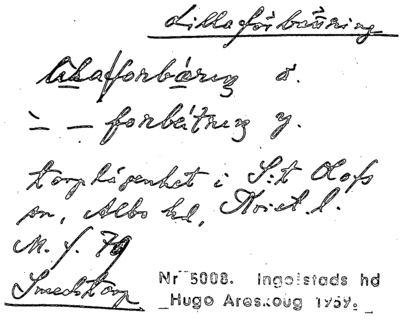 Lillaförbättring
lilla/forbätrıng ö.
– – forbätrıng y.
torplägenhet i S:t Olofs
sn, Albo hd, Krist. l.
M. f. 79
Smedstorp
Nr 5008. Ingelstads hd
Hugo Areskoug 1959.